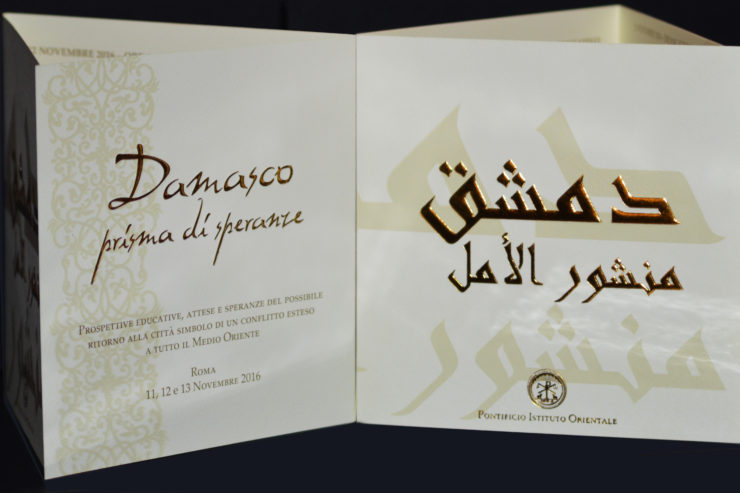 NOVEMBRE 2016
Damasco
prisma di speranze
Prospettive educative, attese e speranze del possibile
ritorno alla città simbolo di un conflitto esteso
a tutto il Medio Oriente
Roma
11, 12 e 13 Novembre 2016
دمشق
منشور الأمل
Pontificio Istituto Orientale